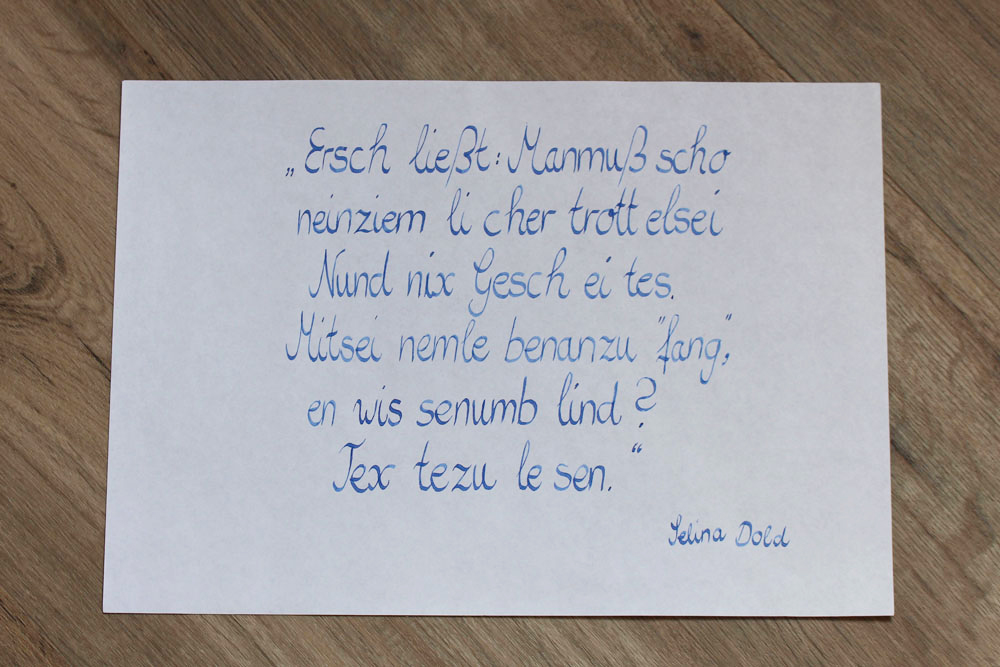 „Ersch ließt: Manmuß scho
neinziem li cher trott elsei
Nund nix Gesch ei tes.
Mitsei nemle benanzu "fang",
en wis senumb lind?
Tex tezu le sen."
Selina Dold